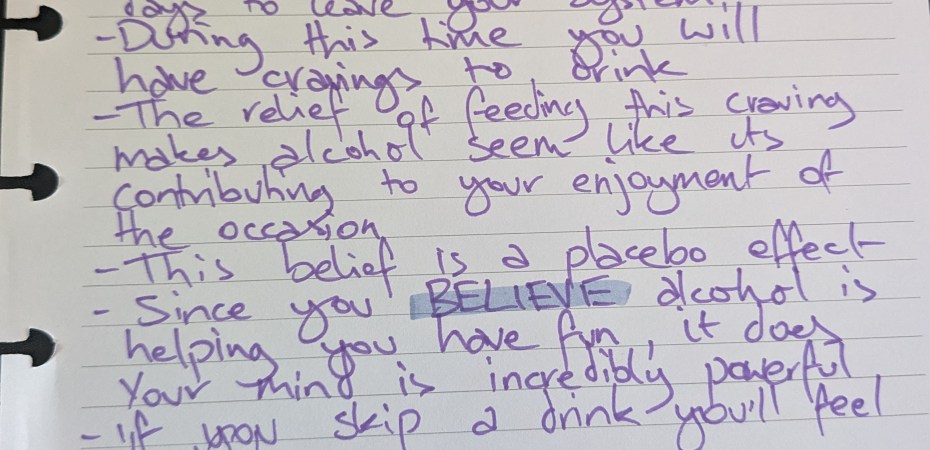 days to leave your system
-During this time you will
have cravings to drink
-The relief of feeding this craving
makes alcohol seem like its
contributing to your enjoyment of
the occasion
-This belief is a placebo effect
- Since you BELIEVE alcohol is
helping you have fun, it does
Your mind is incredibly powerful
- If you skip a drink you'll feel